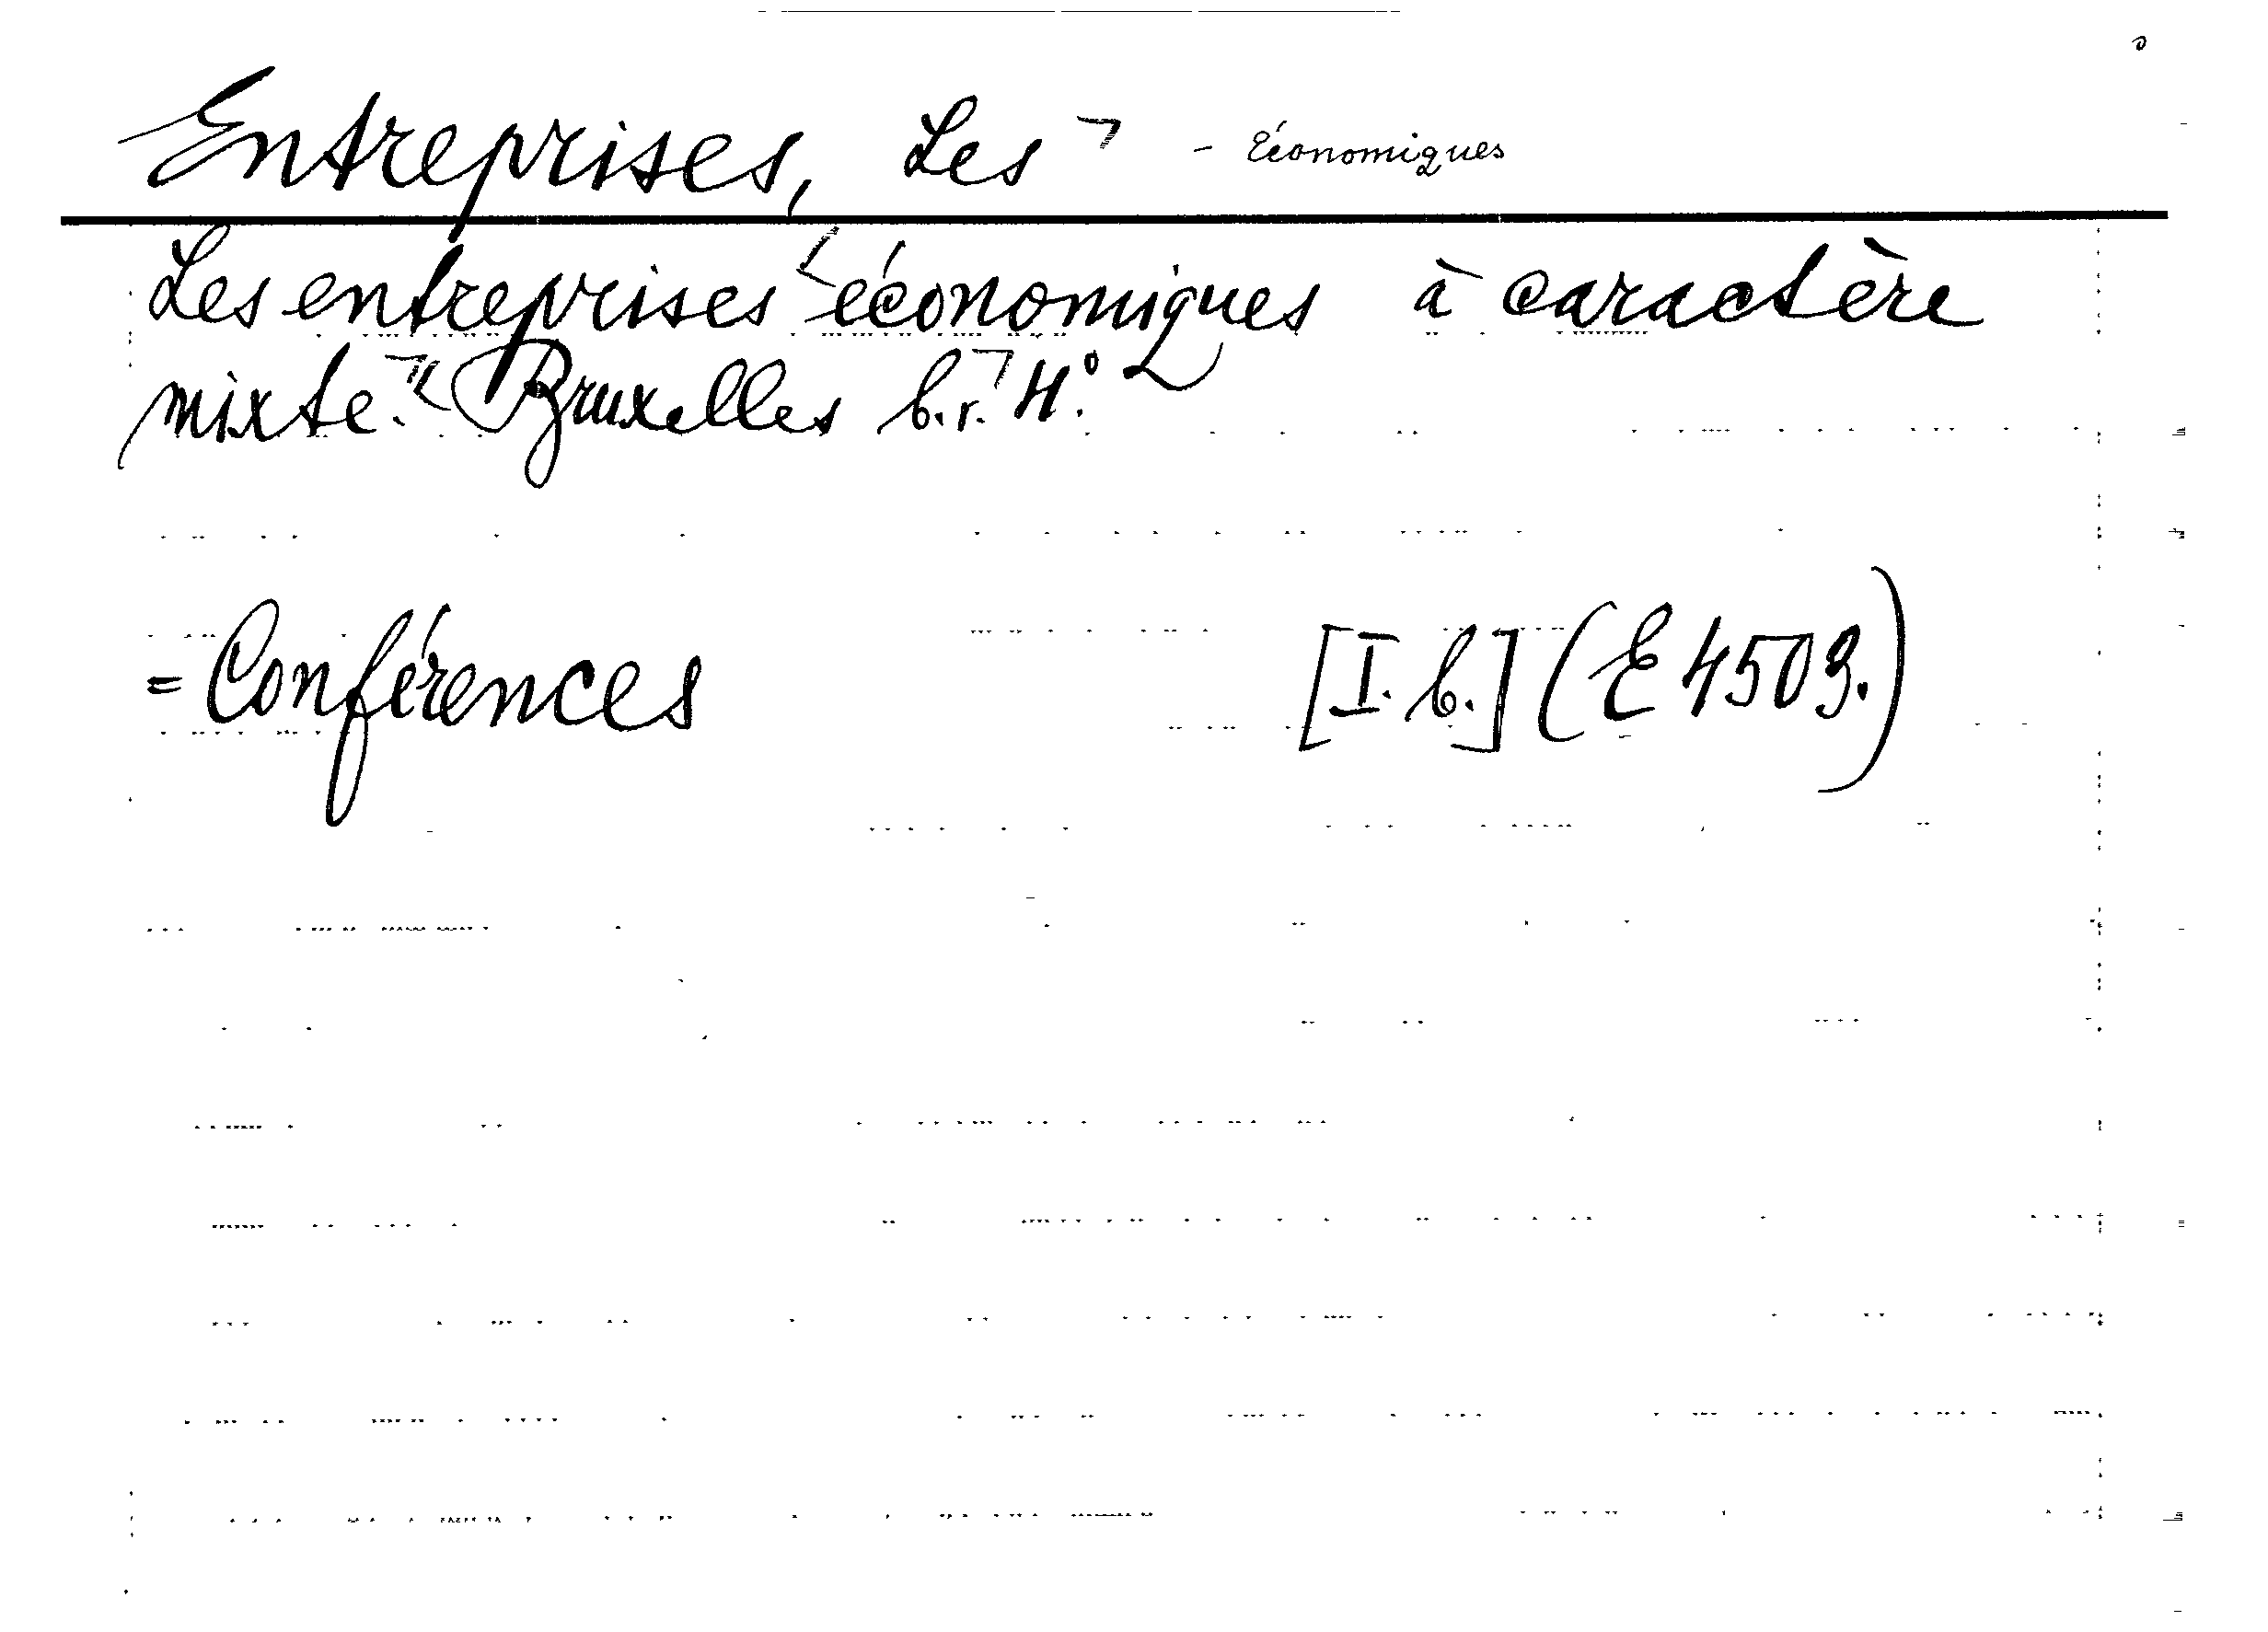 Entreprises, Les - économiques
Les entreprises économiques à caractère
mixte. Bruxelles b.r. 4°.
= Conférences [I. b.] (E 4509.)